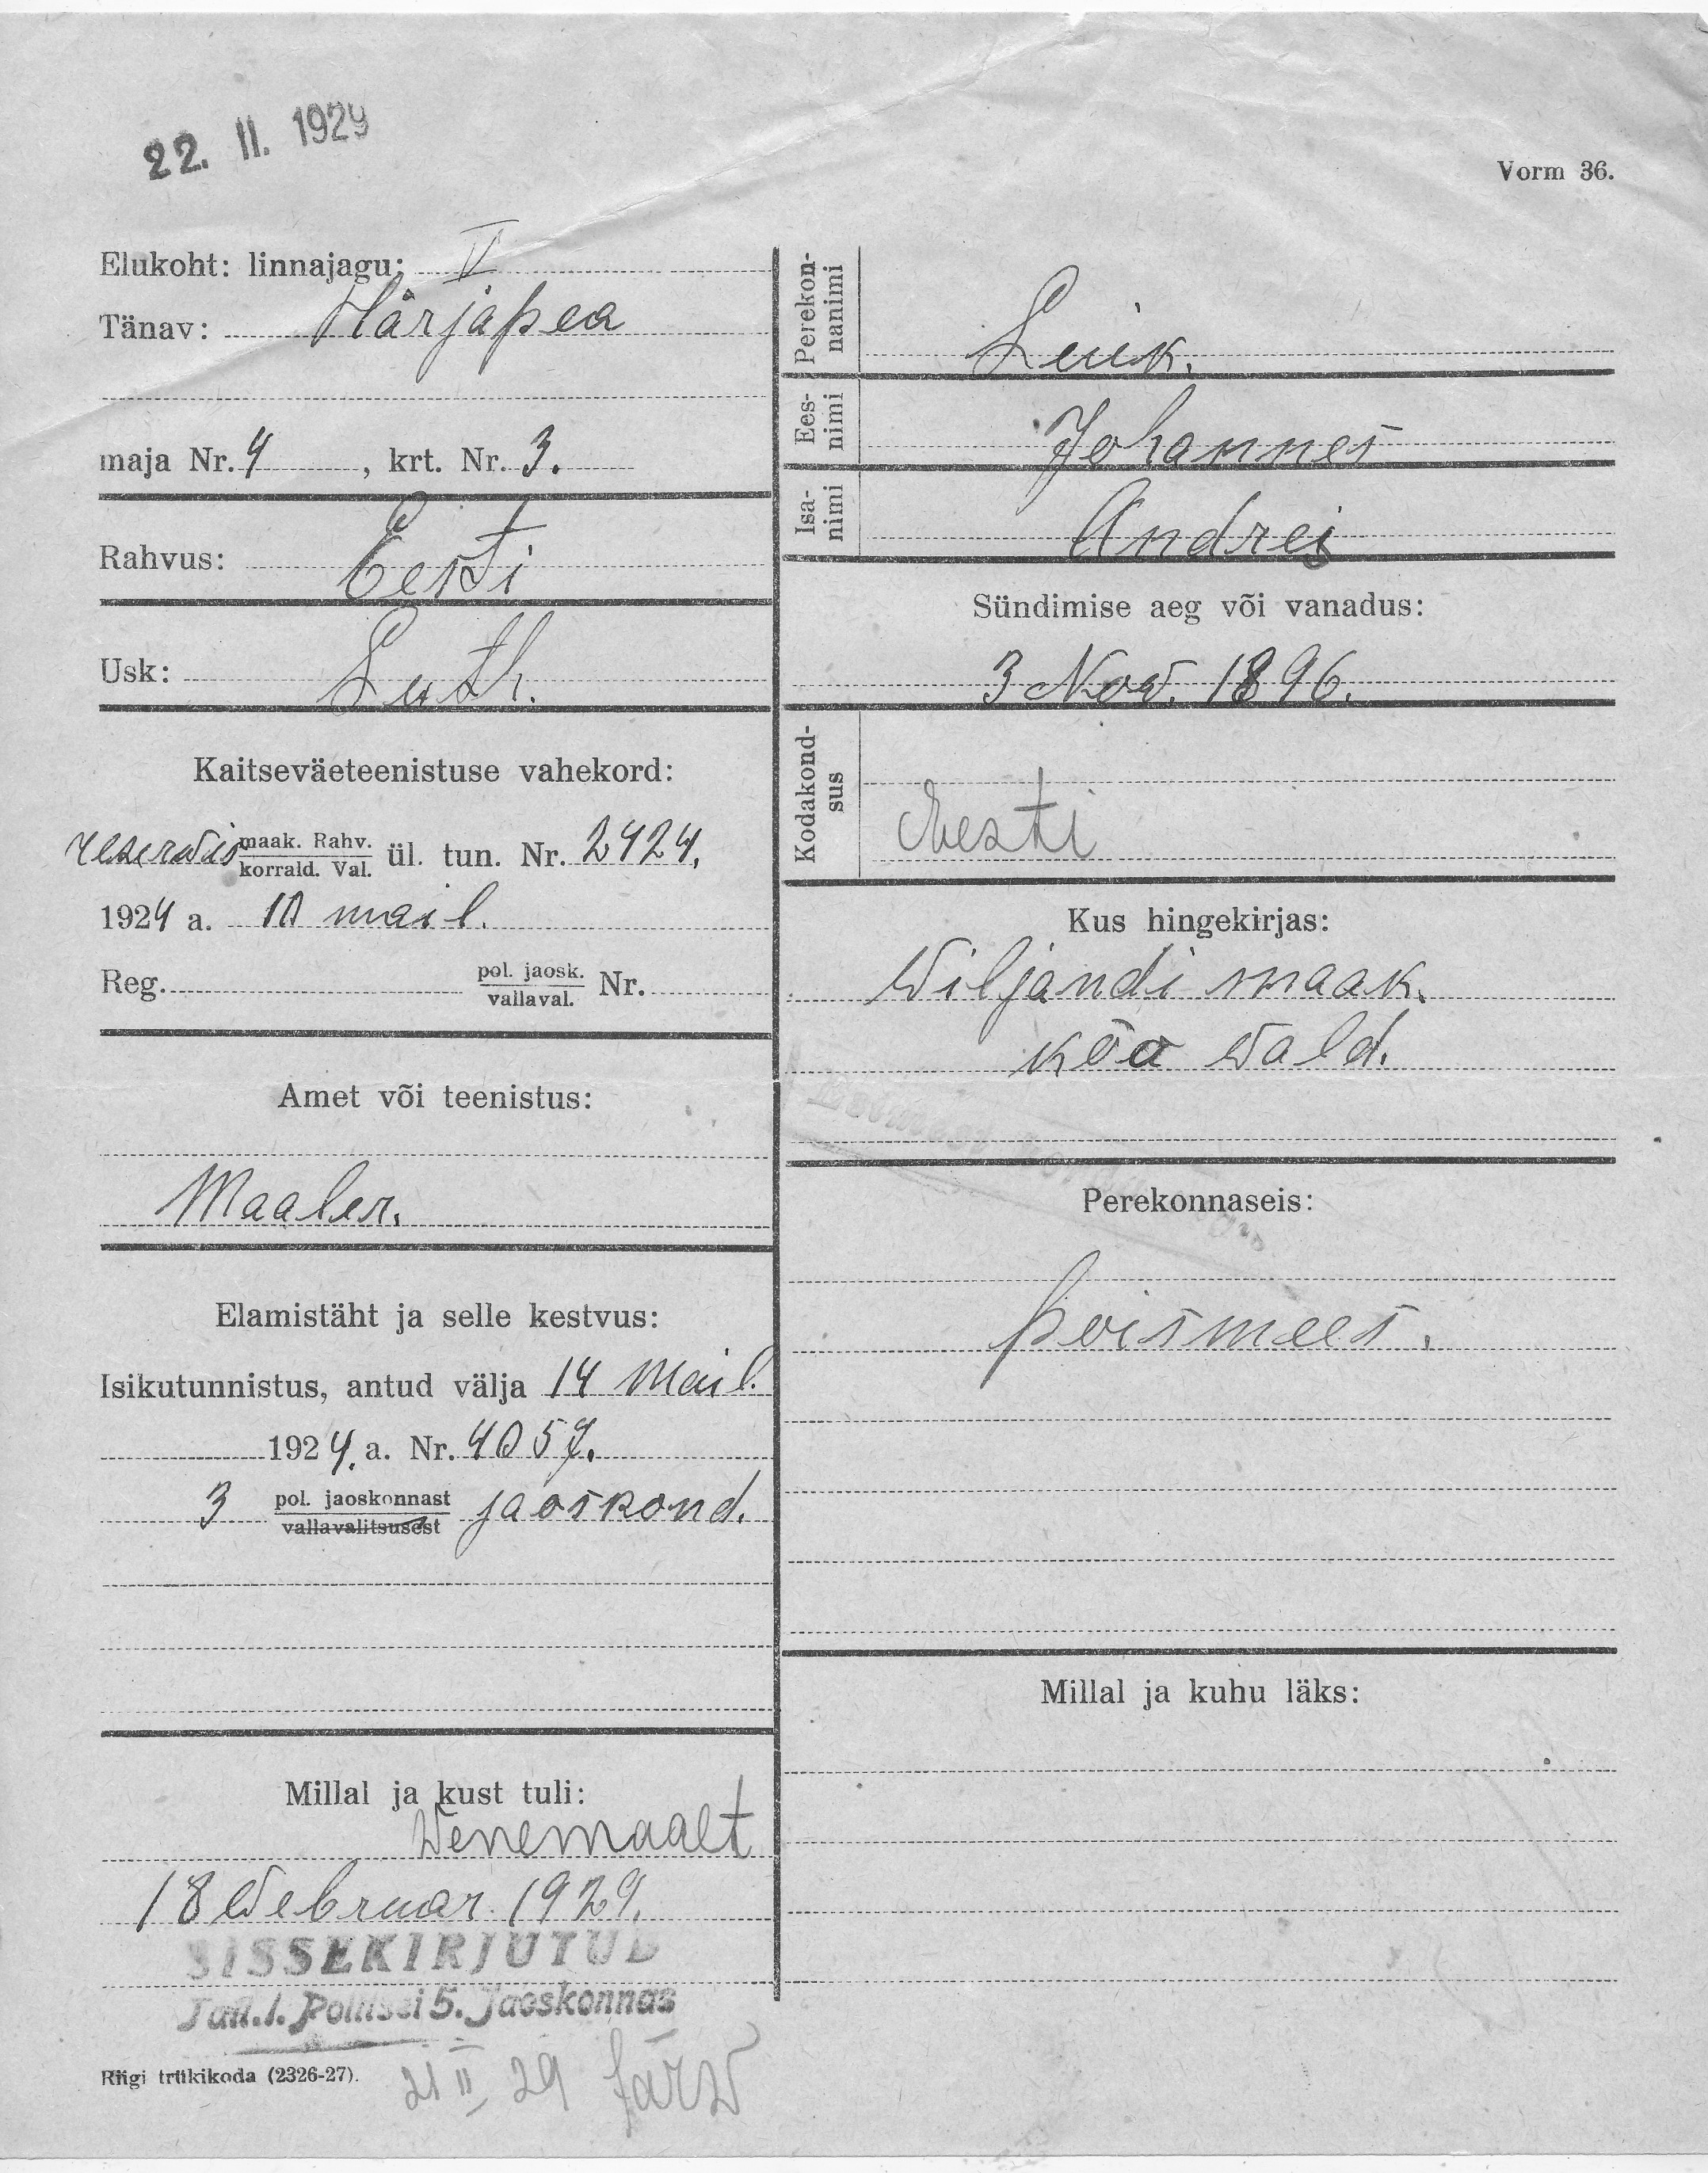 22. II. 1929
Vorm 36.
Elukoht: linnajagu: V
Tänav: Härjapea
maja Nr. 4, krt. Nr. 3.
Rahvus: Eesti
Usk: Luth.
Kaitseväeteenistuse vahekord:
reserwis maak. Rahv. korrald. Val. ül. tun. Nr. 2424.
1924 a. 10 mail.
Reg. pol. jaosk. vallaval. Nr.
Amet või teenistus:
Maaler.
Elamistäht ja selle kestvus:
Isikutunnistus, antud välja 14 Mail.
1924. a. Nr. 4057.
3 pol. jaoskonnast vallavalitsusest jaoskond.
Millal ja kust tuli:
Wenemaalt
18 Webruar 1929.
SISSEKIRJUTUD
Tall. l. Politsei 5. Jaoskonnas
Riigi trükikoda (2326-27).
21 II 29
Perekonnanimi
Luik.
Eesnimi
Johannes
Isanimi
Andrei
Sündimise aeg või vanadus:
3 Now. 1896.
Kodakondsus
Eesti
Kus hingekirjas:
Wiljandi maak.
Kõo wald.
Perekonnaseis:
poismees.
Millal ja kuhu läks: